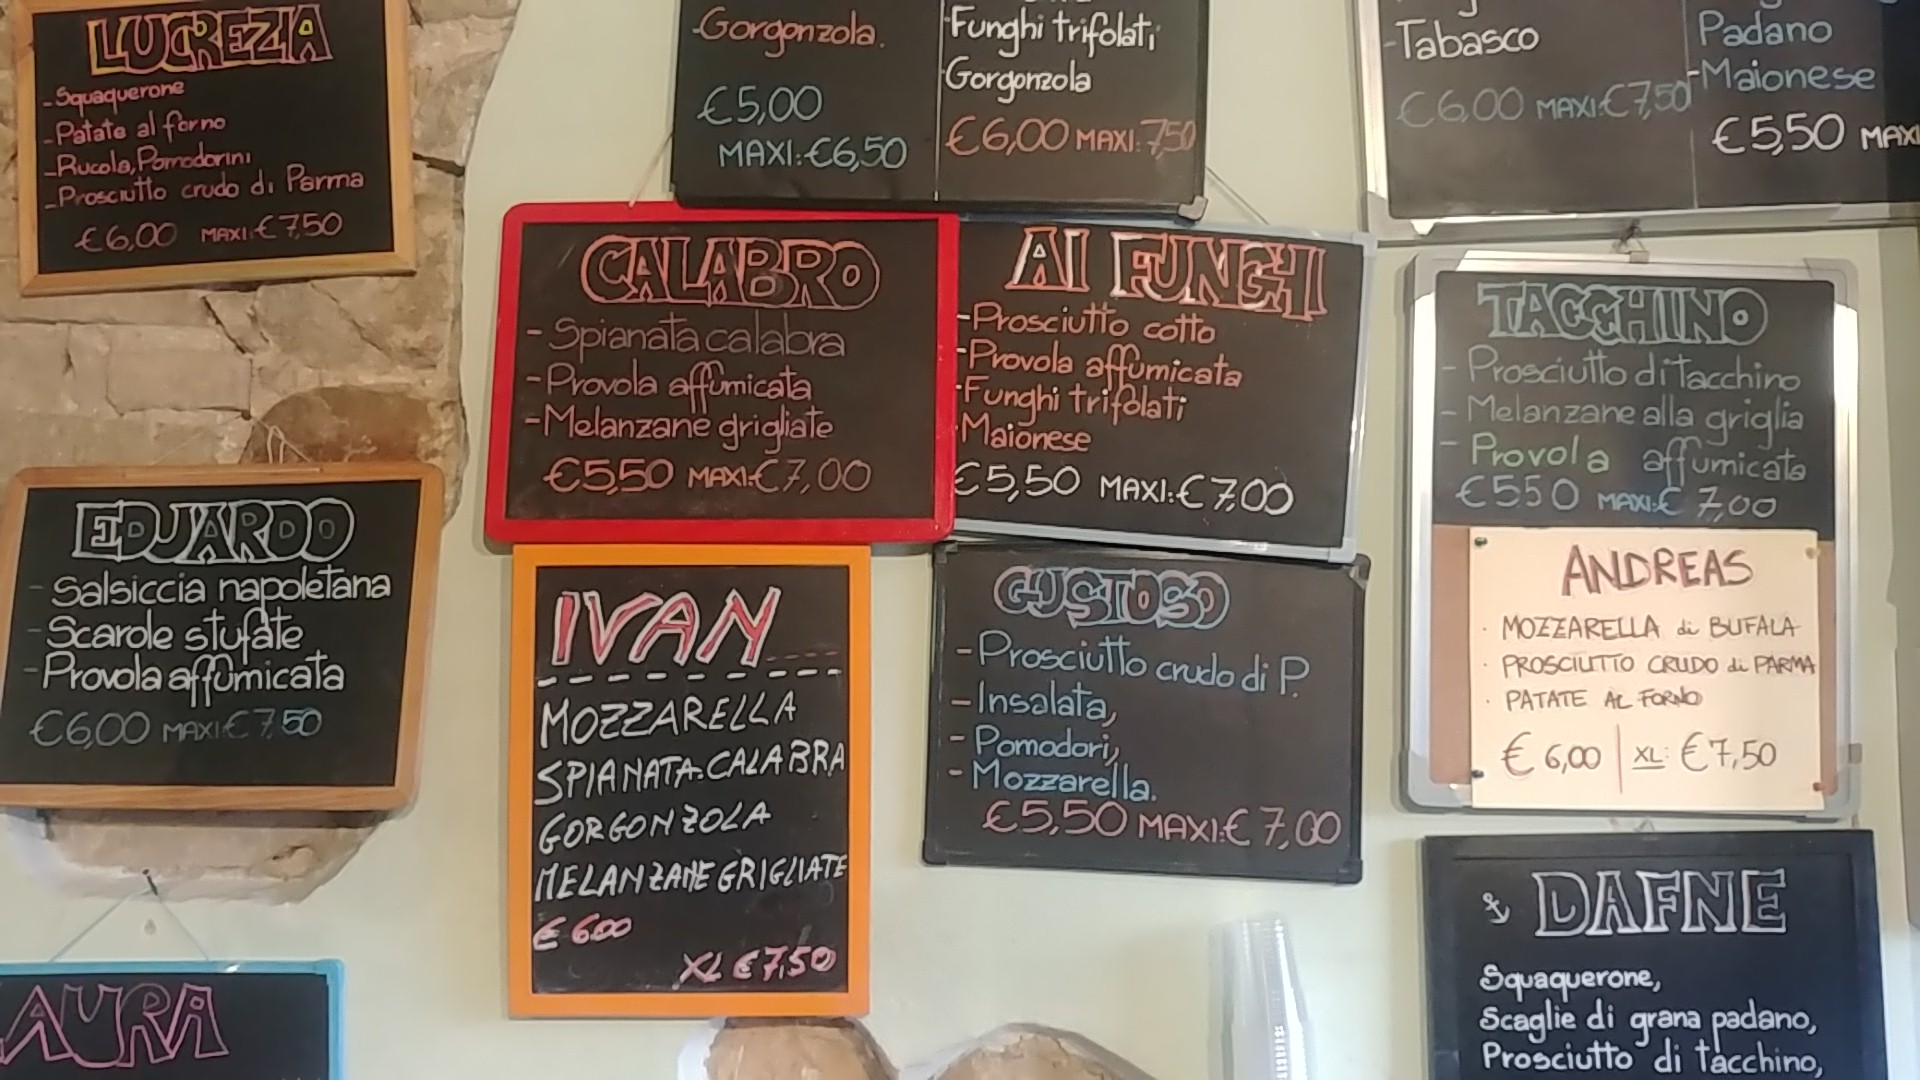 LUCREZIA
- Squaquerone
- Patate al forno
- Rucola, Pomodorini
- Prosciutto crudo di Parma
€6,00 MAXI: €7,50
EDUARDO
- Salsiccia napoletana
- Scarole stufate
- Provola affumicata
€6,00 MAXI: €7,50
AURA
-Gorgonzola.
€5,00
MAXI: €6,50
Funghi trifolati,
Gorgonzola
€6,00 MAXI: 7,50
CALABRO
- Spianata calabra
- Provola affumicata
- Melanzane grigliate
€5,50 MAXI: €7,00
AI FUNGHI
- Prosciutto cotto
- Provola affumicata
- Funghi trifolati
- Maionese
€5,50 MAXI: €7,00
IVAN
MOZZARELLA
SPIANATA CALABRA
GORGONZOLA
MELANZANE GRIGLIATE
€ 600
XL € 7,50
GUSTOSO
- Prosciutto crudo di P.
- Insalata,
- Pomodori,
- Mozzarella.
€5,50 MAXI: € 7,00
-Tabasco
€6,00 MAXI: €7,50
Padano
-Maionese
€5,50 MAXI
TACCHINO
- Prosciutto di tacchino
- Melanzane alla griglia
- Provola affumicata
€550 MAXI: € 7,00
ANDREAS
· MOZZARELLA di BUFALA
· PROSCIUTTO CRUDO di PARMA
· PATATE AL FORNO
€ 6,00 | XL: € 7,50
DAFNE
Squaquerone,
Scaglie di grana padano,
Prosciutto di tacchino,